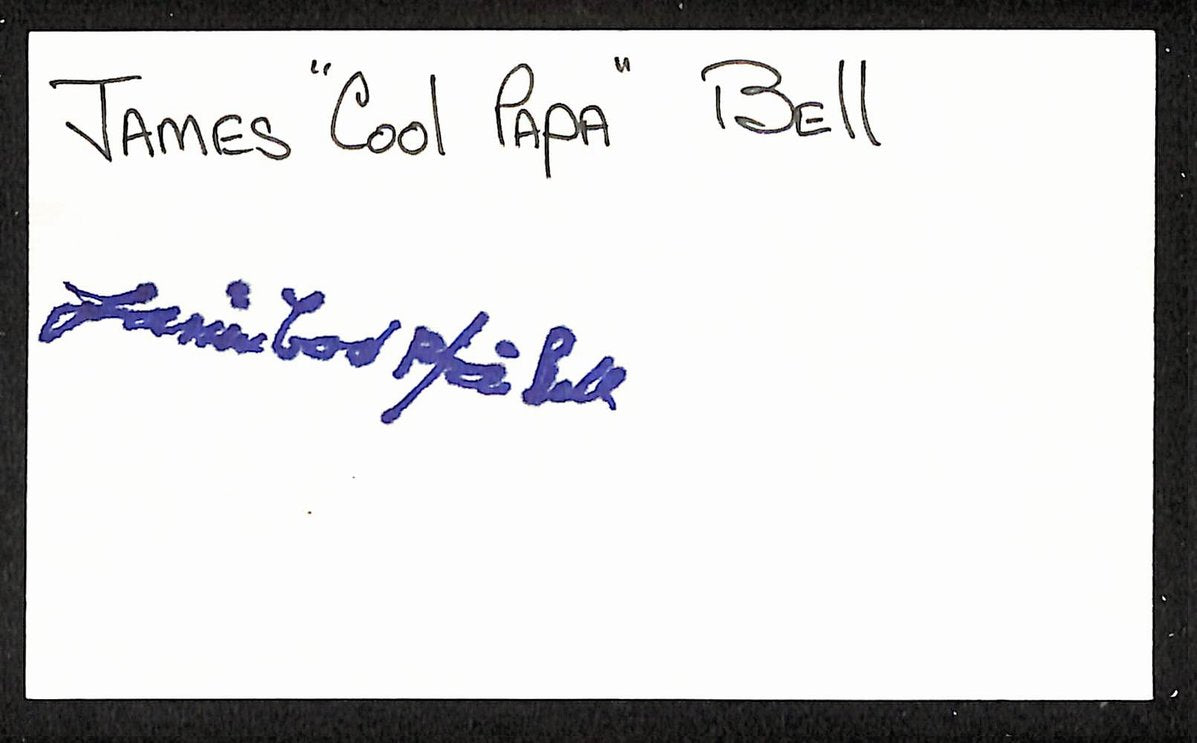 James "Cool Papa" Bell
Cool Papa Bell